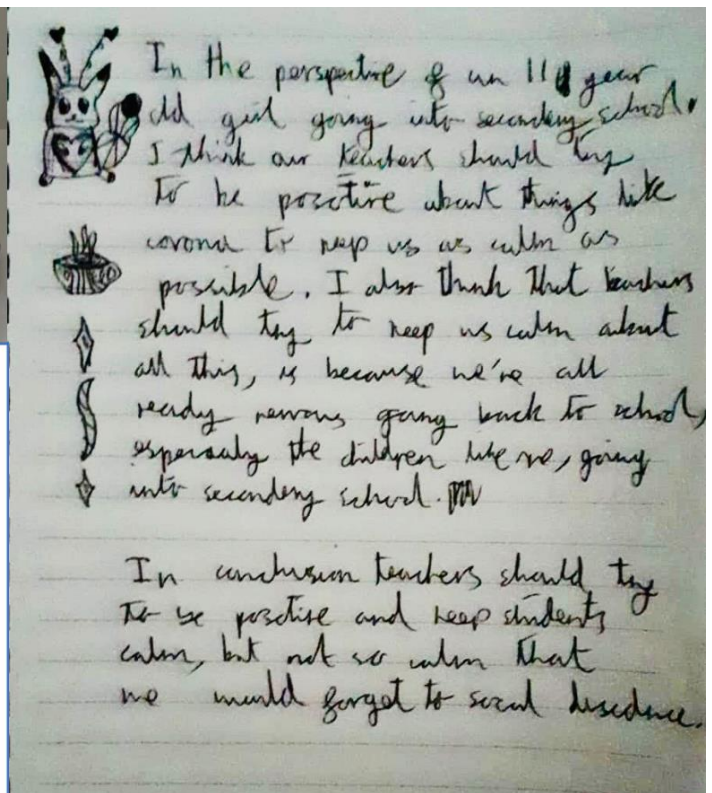 In the perspective of an 11 year
old girl going into secondery school.
I think our teachers should try
to be posctive about things like
corona to keep us as calm as
possible. I also think that teachers
should try to keep us calm about
all this, is because we're all
ready nervous going back to school,
especially the children like me, going
into secondery school.
In conclusion teachers should try
to be posctive and keep students
calm, but not so calm that
we would forget to social disedence.